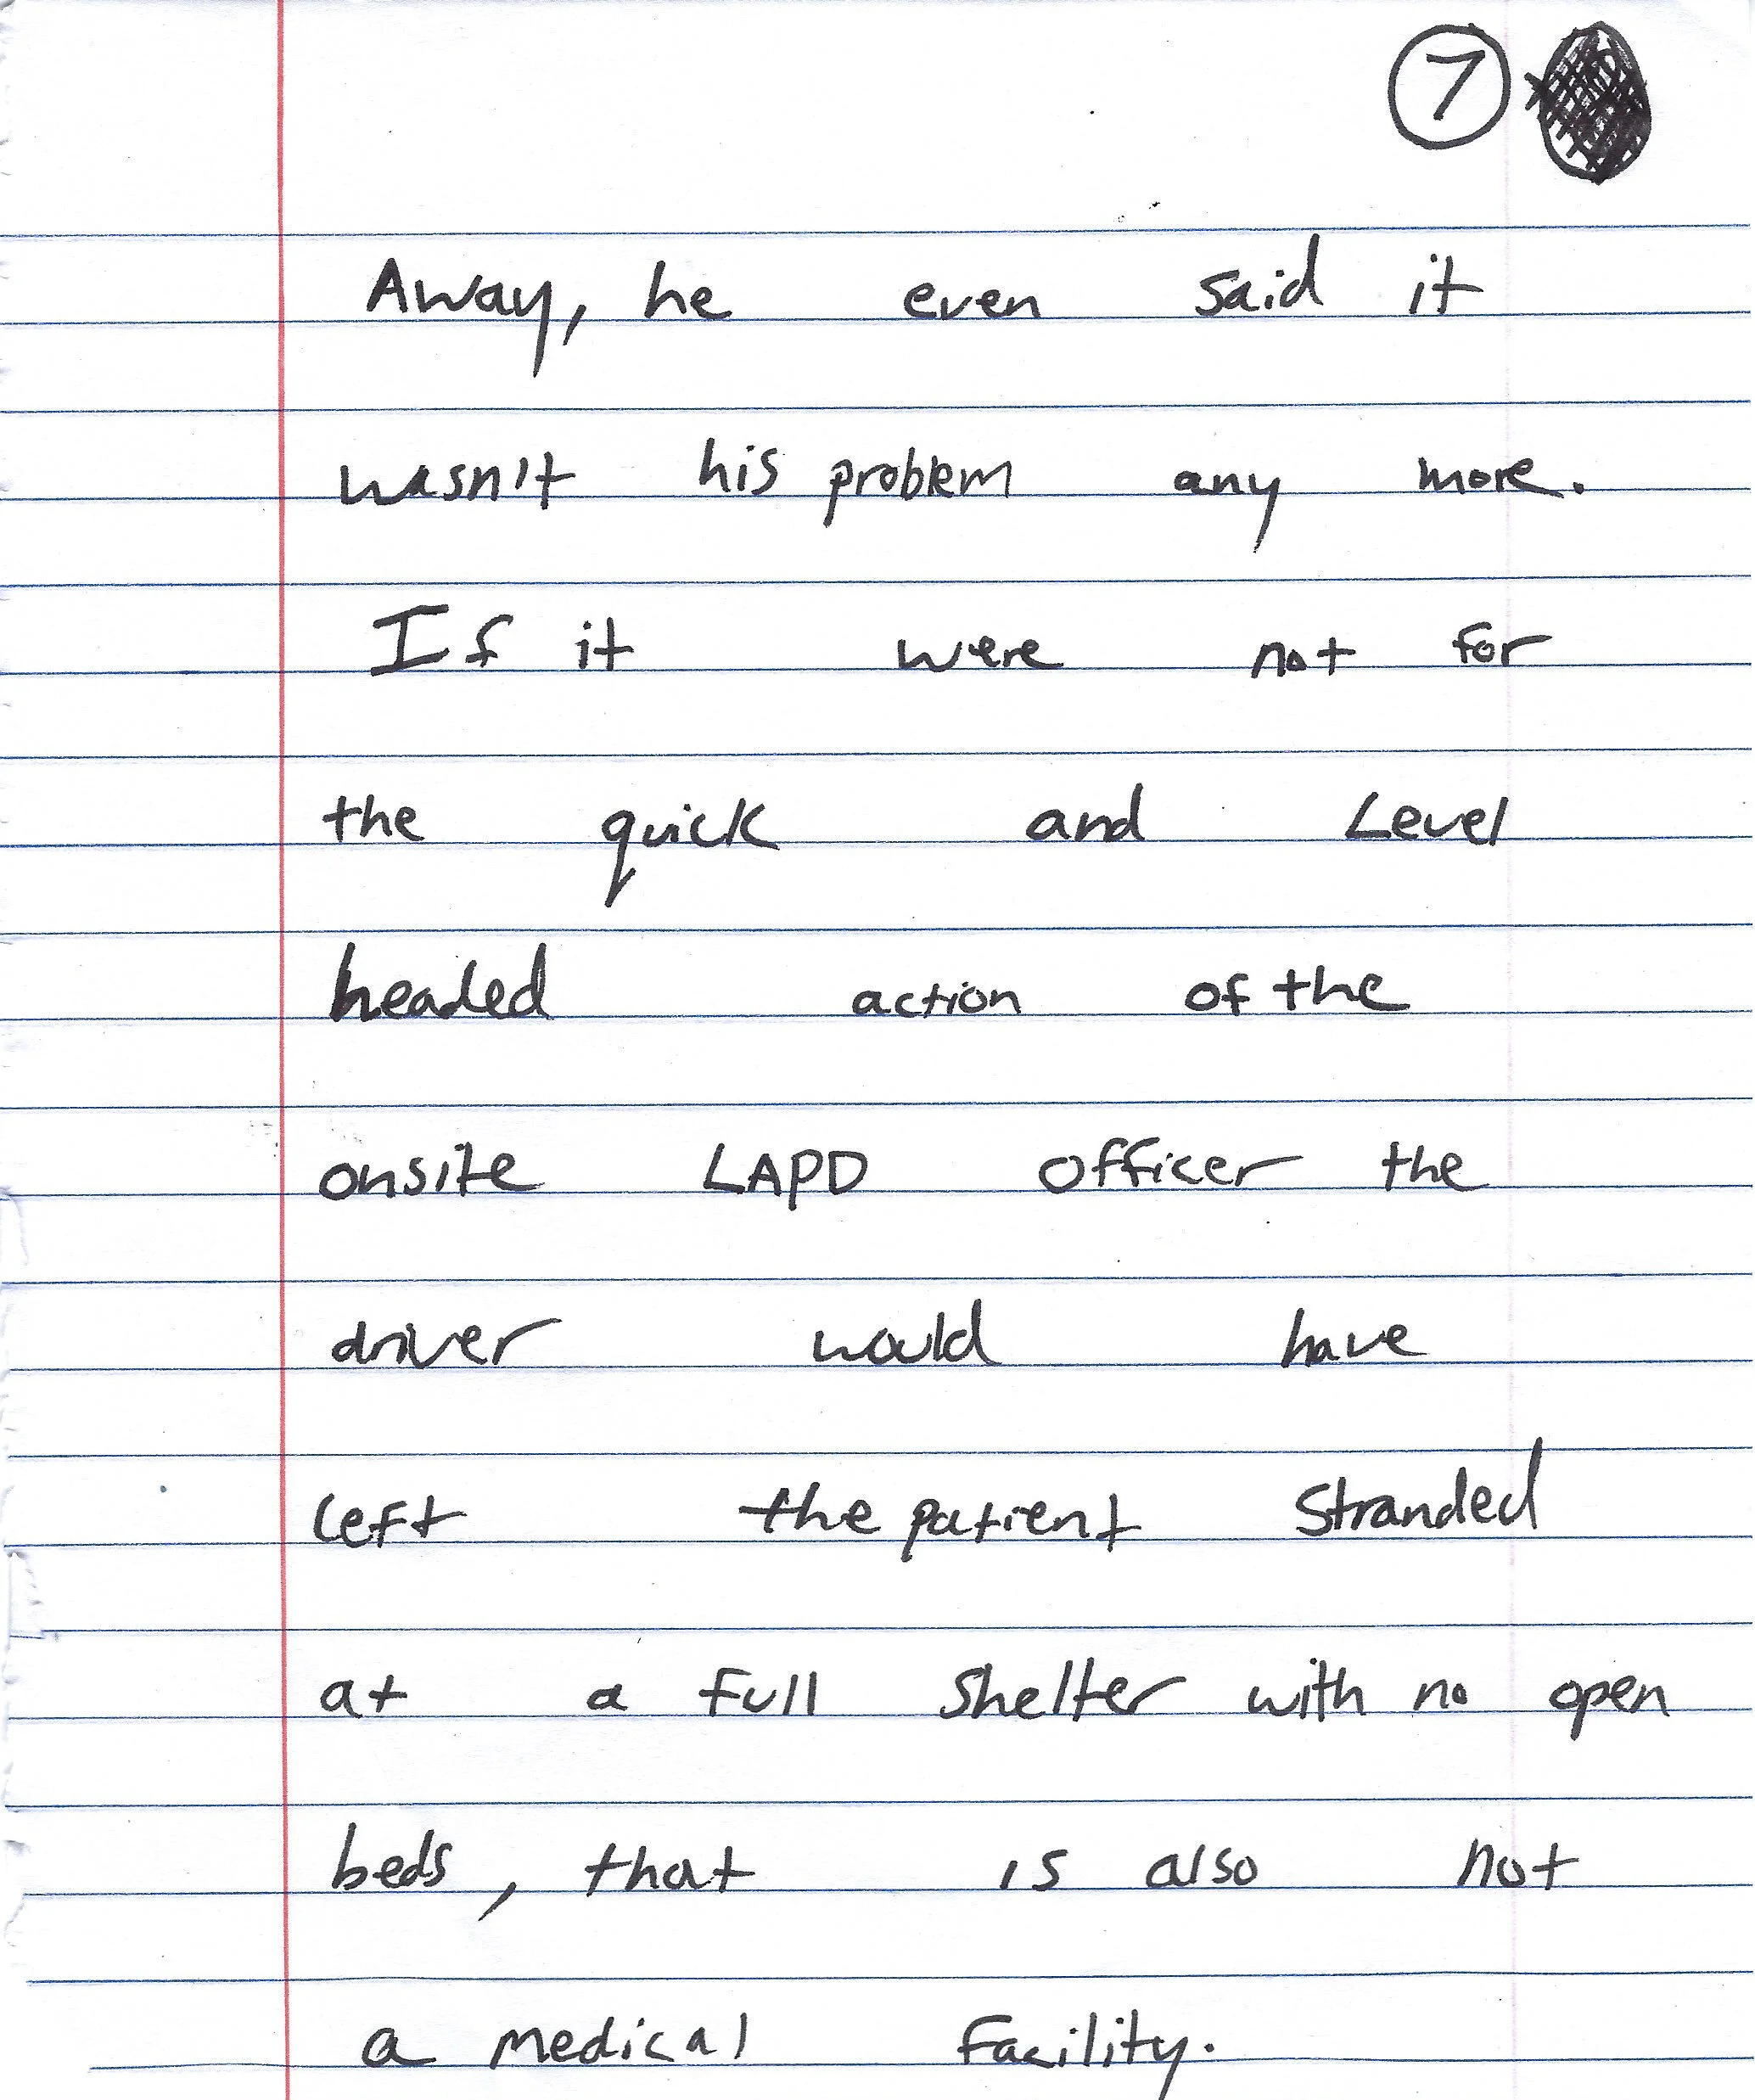 7
Away, he even said it
wasn't his problem any more.
If it were not for
the quick and Level
headed action of the
onsite LAPD officer the
driver would have
left the patient stranded
at a full shelter with no open
beds, that is also not
a medical facility.